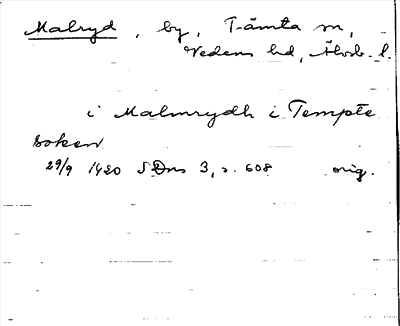 Malryd, by, Tämta sn,
Vedens hd, Älvsb. l.
i Malmrydh i Tempte
soken
29/9 1420 SDns 3, s. 608 orig.